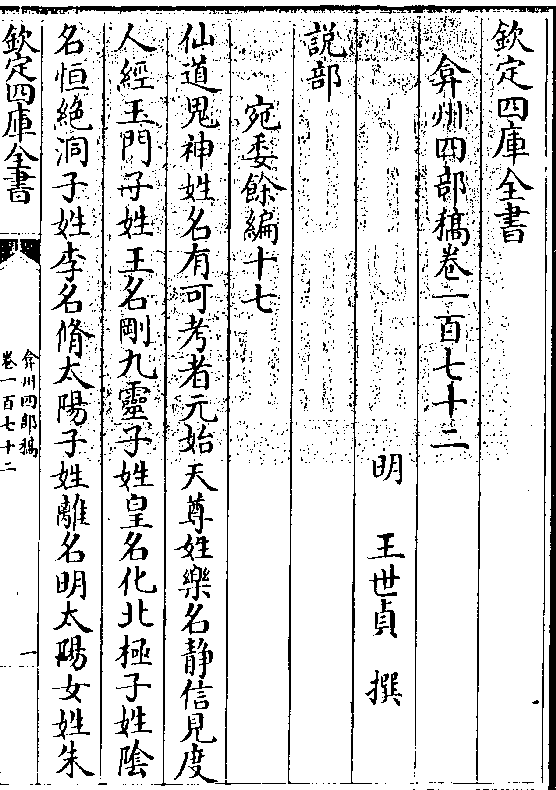 欽定四庫全書
弇州四部稿卷一百七十二
明 王世貞 撰
說部
宛委餘編十七
仙道鬼神姓名有可考者元始天尊姓樂名静信見度
人經玉門子姓王名剛九靈子姓皇名化北極子姓陰
名恒絶洞子姓李名脩太陽子姓離名明太陽女姓朱
欽定四庫全書
弇州四部稿
卷一百七十二
一